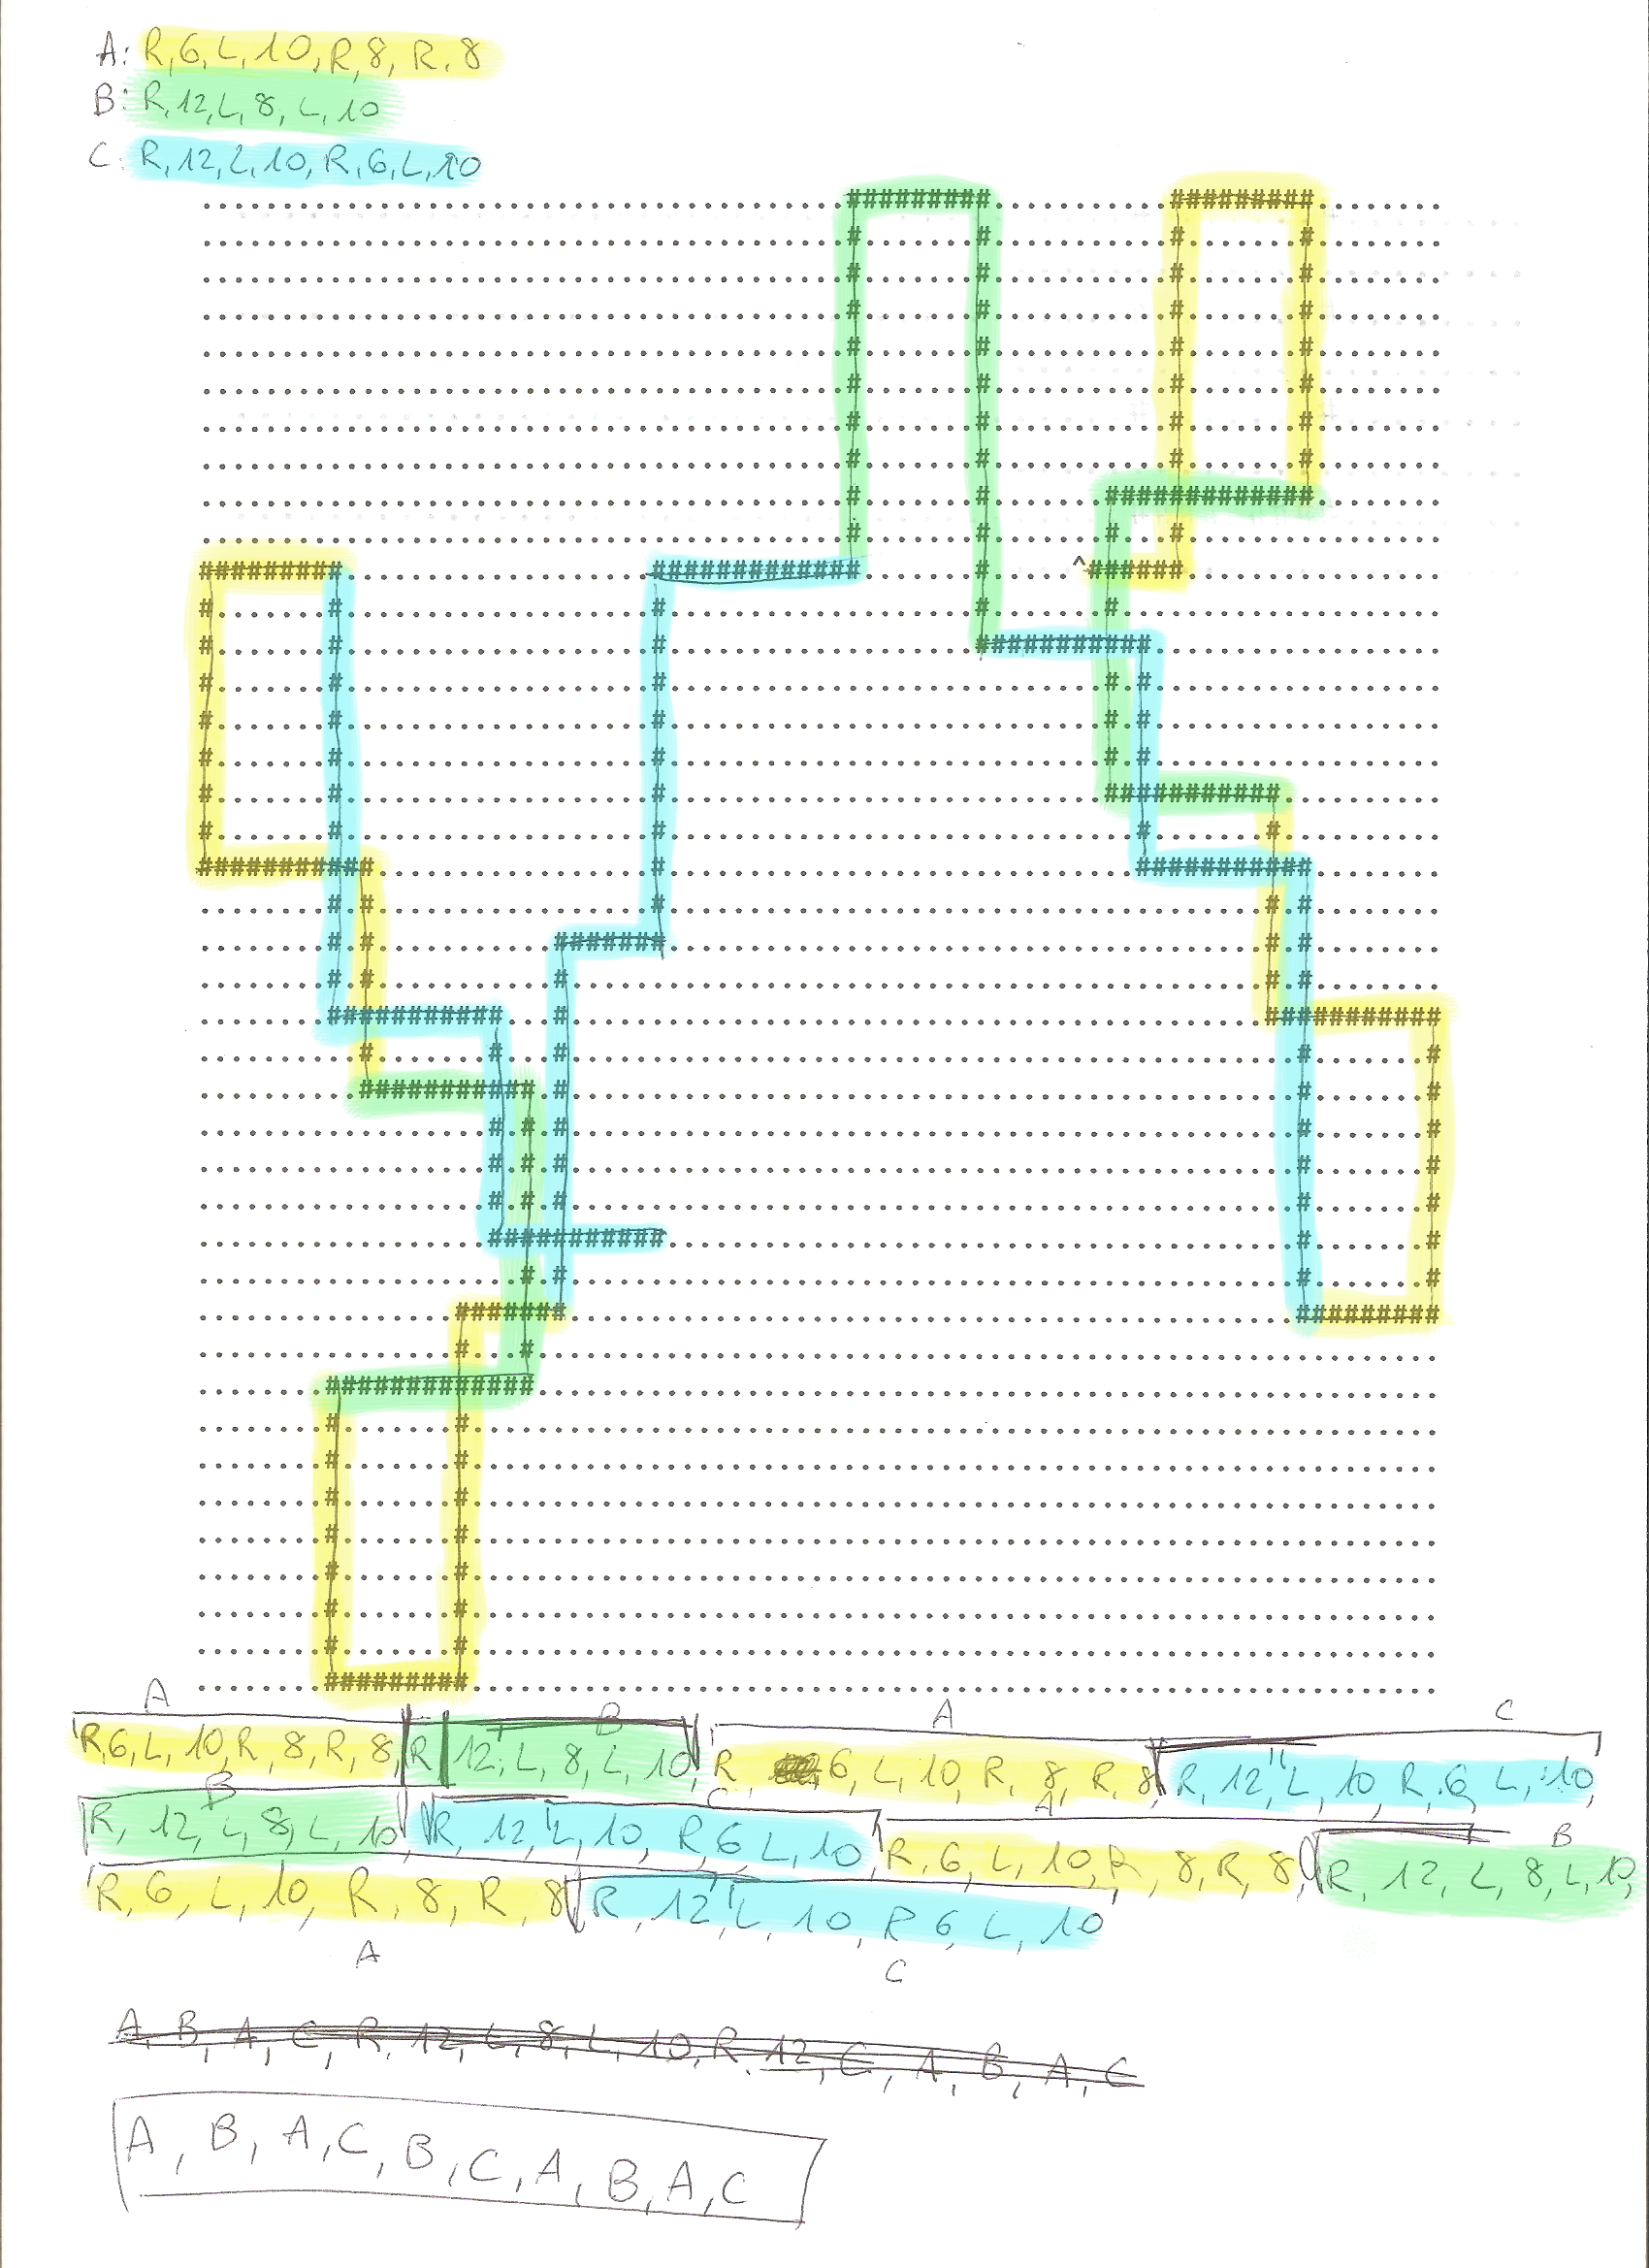 A: R,6,L,10,R,8,R,8
B: R,12,L,8,L,10
C: R,12,L,10,R,6,L,10
........................................#########...........#########........
........................................#.......#...........#.......#........
........................................#.......#...........#.......#........
........................................#.......#...........#.......#........
........................................#.......#...........#.......#........
........................................#.......#...........#.......#........
........................................#.......#...........#.......#........
........................................#.......#...........#.......#........
........................................#.......#.......#############........
........................................#.......#.......#...#................
#########...................#############.......#.....^######................
#.......#...................#...................#.......#....................
#.......#...................#...................###########..................
#.......#...................#...........................#.#..................
#.......#...................#...........................#.#..................
#.......#...................#...........................#.#..................
#.......#...................#...........................###########..........
#.......#...................#.............................#.......#..........
###########.................#.............................###########........
........#.#.................#.....................................#.#........
........#.#...........#######.....................................#.#........
........#.#...........#...........................................#.#........
........###########...#...........................................###########
..........#.......#...#.............................................#.......#
..........###########.#.............................................#.......#
..................#.#.#.............................................#.......#
..................#.#.#.............................................#.......#
..................#.#.#.............................................#.......#
..................###########.......................................#.......#
....................#.#.............................................#.......#
................#######.............................................#########
................#...#........................................................
........#############........................................................
........#.......#............................................................
........#.......#............................................................
........#.......#............................................................
........#.......#............................................................
........#.......#............................................................
........#.......#............................................................
........#.......#............................................................
........#########............................................................
A B A C
R,6,L,10,R,8,R,8,R,12,L,8,L,10,R,6,L,10,R,8,R,8,R,12,L,10,R,6,L,10,
B C A B
R,12,L,8,L,10,R,12,L,10,R,6,L,10,R,6,L,10,R,8,R,8,R,12,L,8,L,10,
R,6,L,10,R,8,R,8,R,12,L,10,R,6,L,10
A C
A,B,A,C,R,12,L,8,L,10,R,12,C,A,B,A,C
A,B,A,C,B,C,A,B,A,C